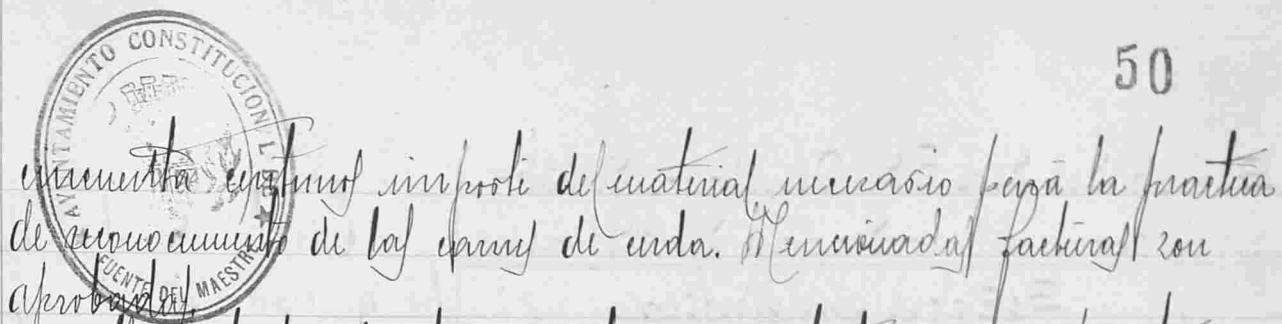 AYUNTAMIENTO CONSTITUCIONAL
FUENTE DEL MAESTRE
50
cincuenta centimos importe del material necesario para la practica
de reconocimiento de las carnes de cerda. Mencionadas facturas son
aprobadas.